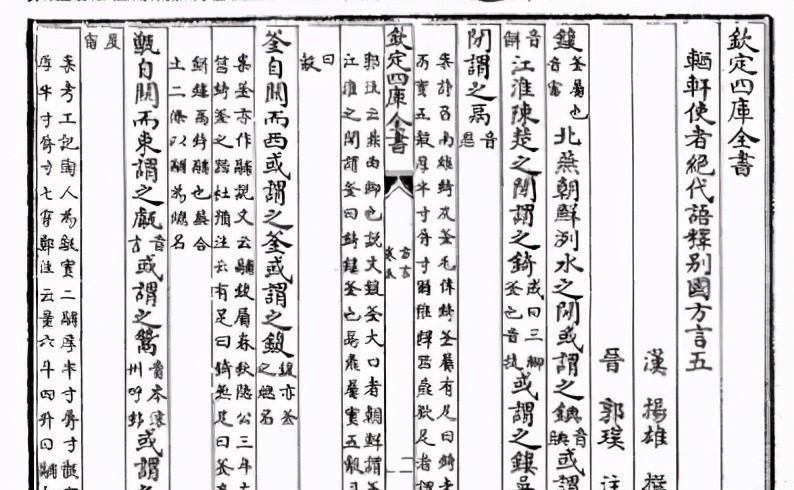 欽定四庫全書
輶軒使者絕代語釋別國方言五
漢 揚雄 撰
晉 郭璞 注
鍑釜屬也音富北燕朝鮮洌水之間或謂之錪音腆或謂
音餅江淮陳楚之間謂之錡或曰三脚釜也音技或謂之鏤吳
間謂之鬲音
案詩召南維錡及釜毛傳錡釜屬有足曰錡
而實五觳厚半寸脣寸爾雅釋器鼎欵足者謂
欽定四庫全書
方言
卷五
郭注云鼎曲脚也説文鍑釜大口者朝鮮謂釜
江淮之間謂釜曰錡鍑釜也鬲鼎屬實五觳
曰
觳
釜自關而西或謂之釜或謂之鍑鍑亦釜之緫名
案釜亦作鬴説文云鬴鍑屬春秋隱公三年左
筥錡釜之器杜預注云有足曰錡無足曰釜
鬲錡鬴也蓋合
上二條以鬴為緫名
甑自關而東謂之甗音言或謂之鬵州呼鉹或謂之
甯
案考工記陶人為甗實二鬴厚半寸脣寸甑實
厚半寸脣寸七穿鄭注云量六斗四升曰鬴